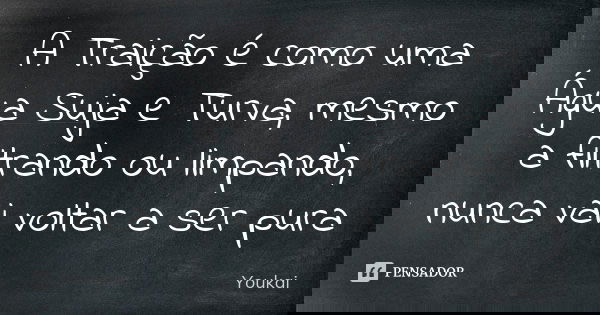 A Traição é como uma
Água Suja e Turva, mesmo
a filtrando ou limpando,
nunca vai voltar a ser pura
Youkai
PENSADOR